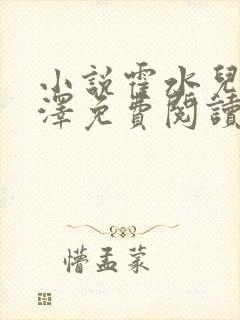 小説霍水兒
澤免費閱讀
懵孟蒙